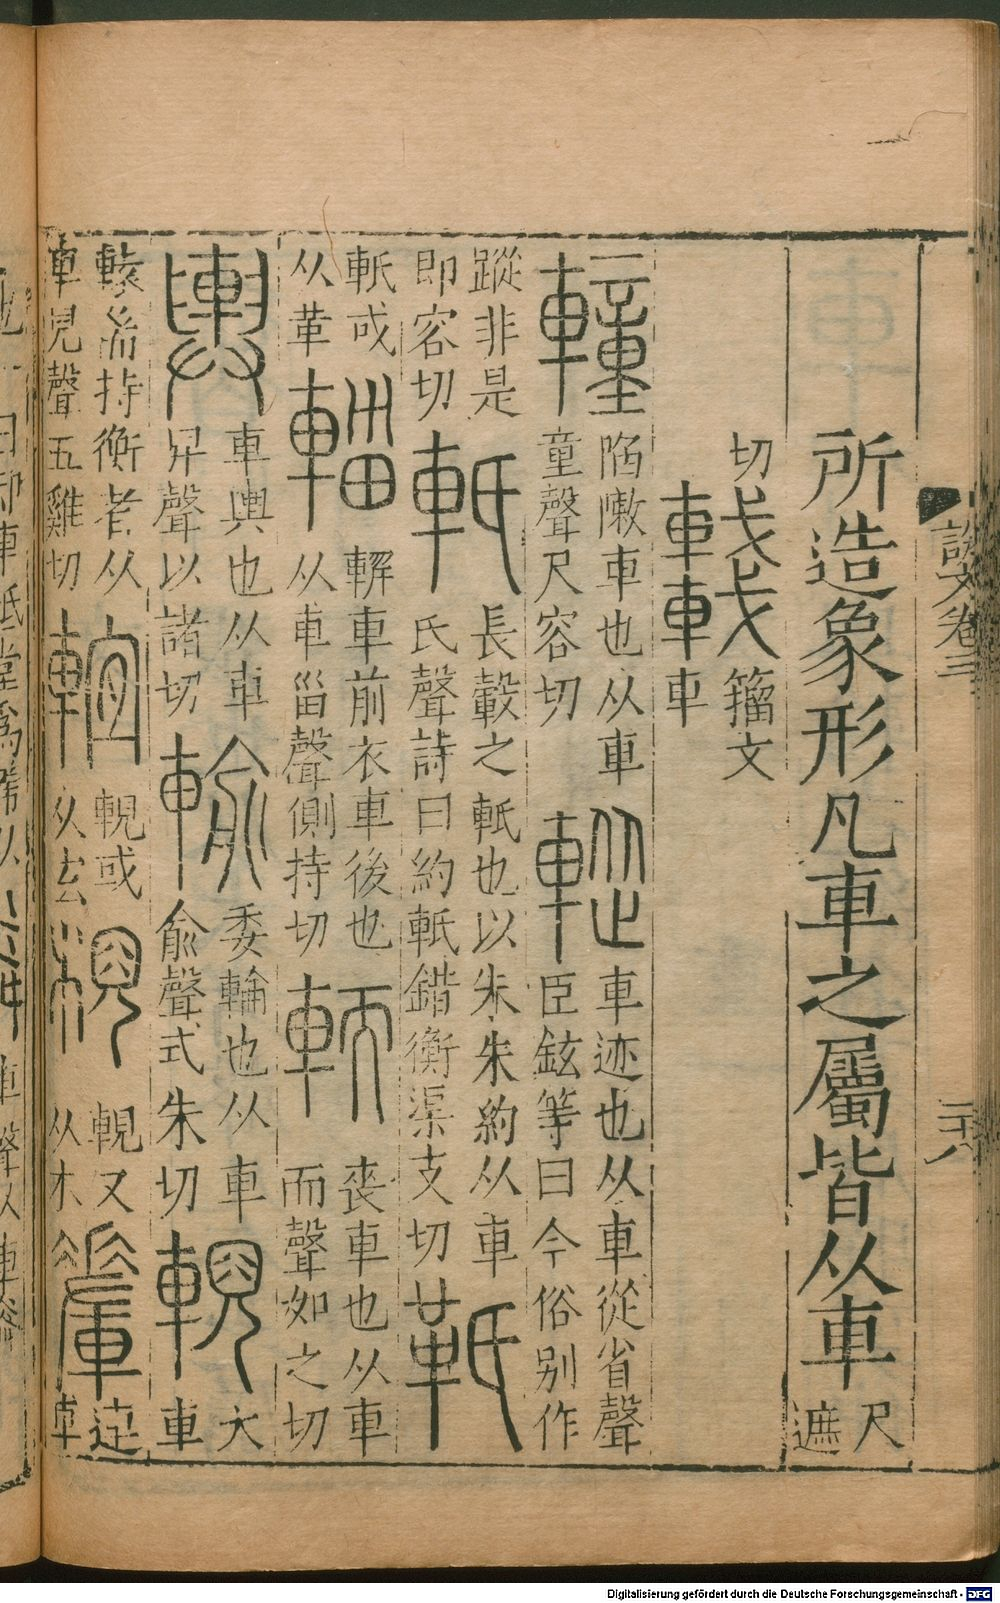 說文卷
所造象形凡車之屬皆从車尺遮
切𨏖籒文車
䡴陷敶車也从車童聲尺容切𨌰車迹也从車從省聲臣鉉等曰今俗別作
蹤非是即容切軝長轂之軝也以朱朱約从車氏聲詩曰約軝錯衡渠支切𩉬
軝或从革輜輧車前衣車後也从車甾聲側持切輀喪車也从車而聲如之切
輿車輿也从車舁聲以諸切輸委輪也从車俞聲式朱切輗大車
轅耑持衡者从車兒聲五雞切輗或从玄棿輗又从木連車
Digitalisierung gefördert durch die Deutsche Forschungsgemeinschaft - DFG